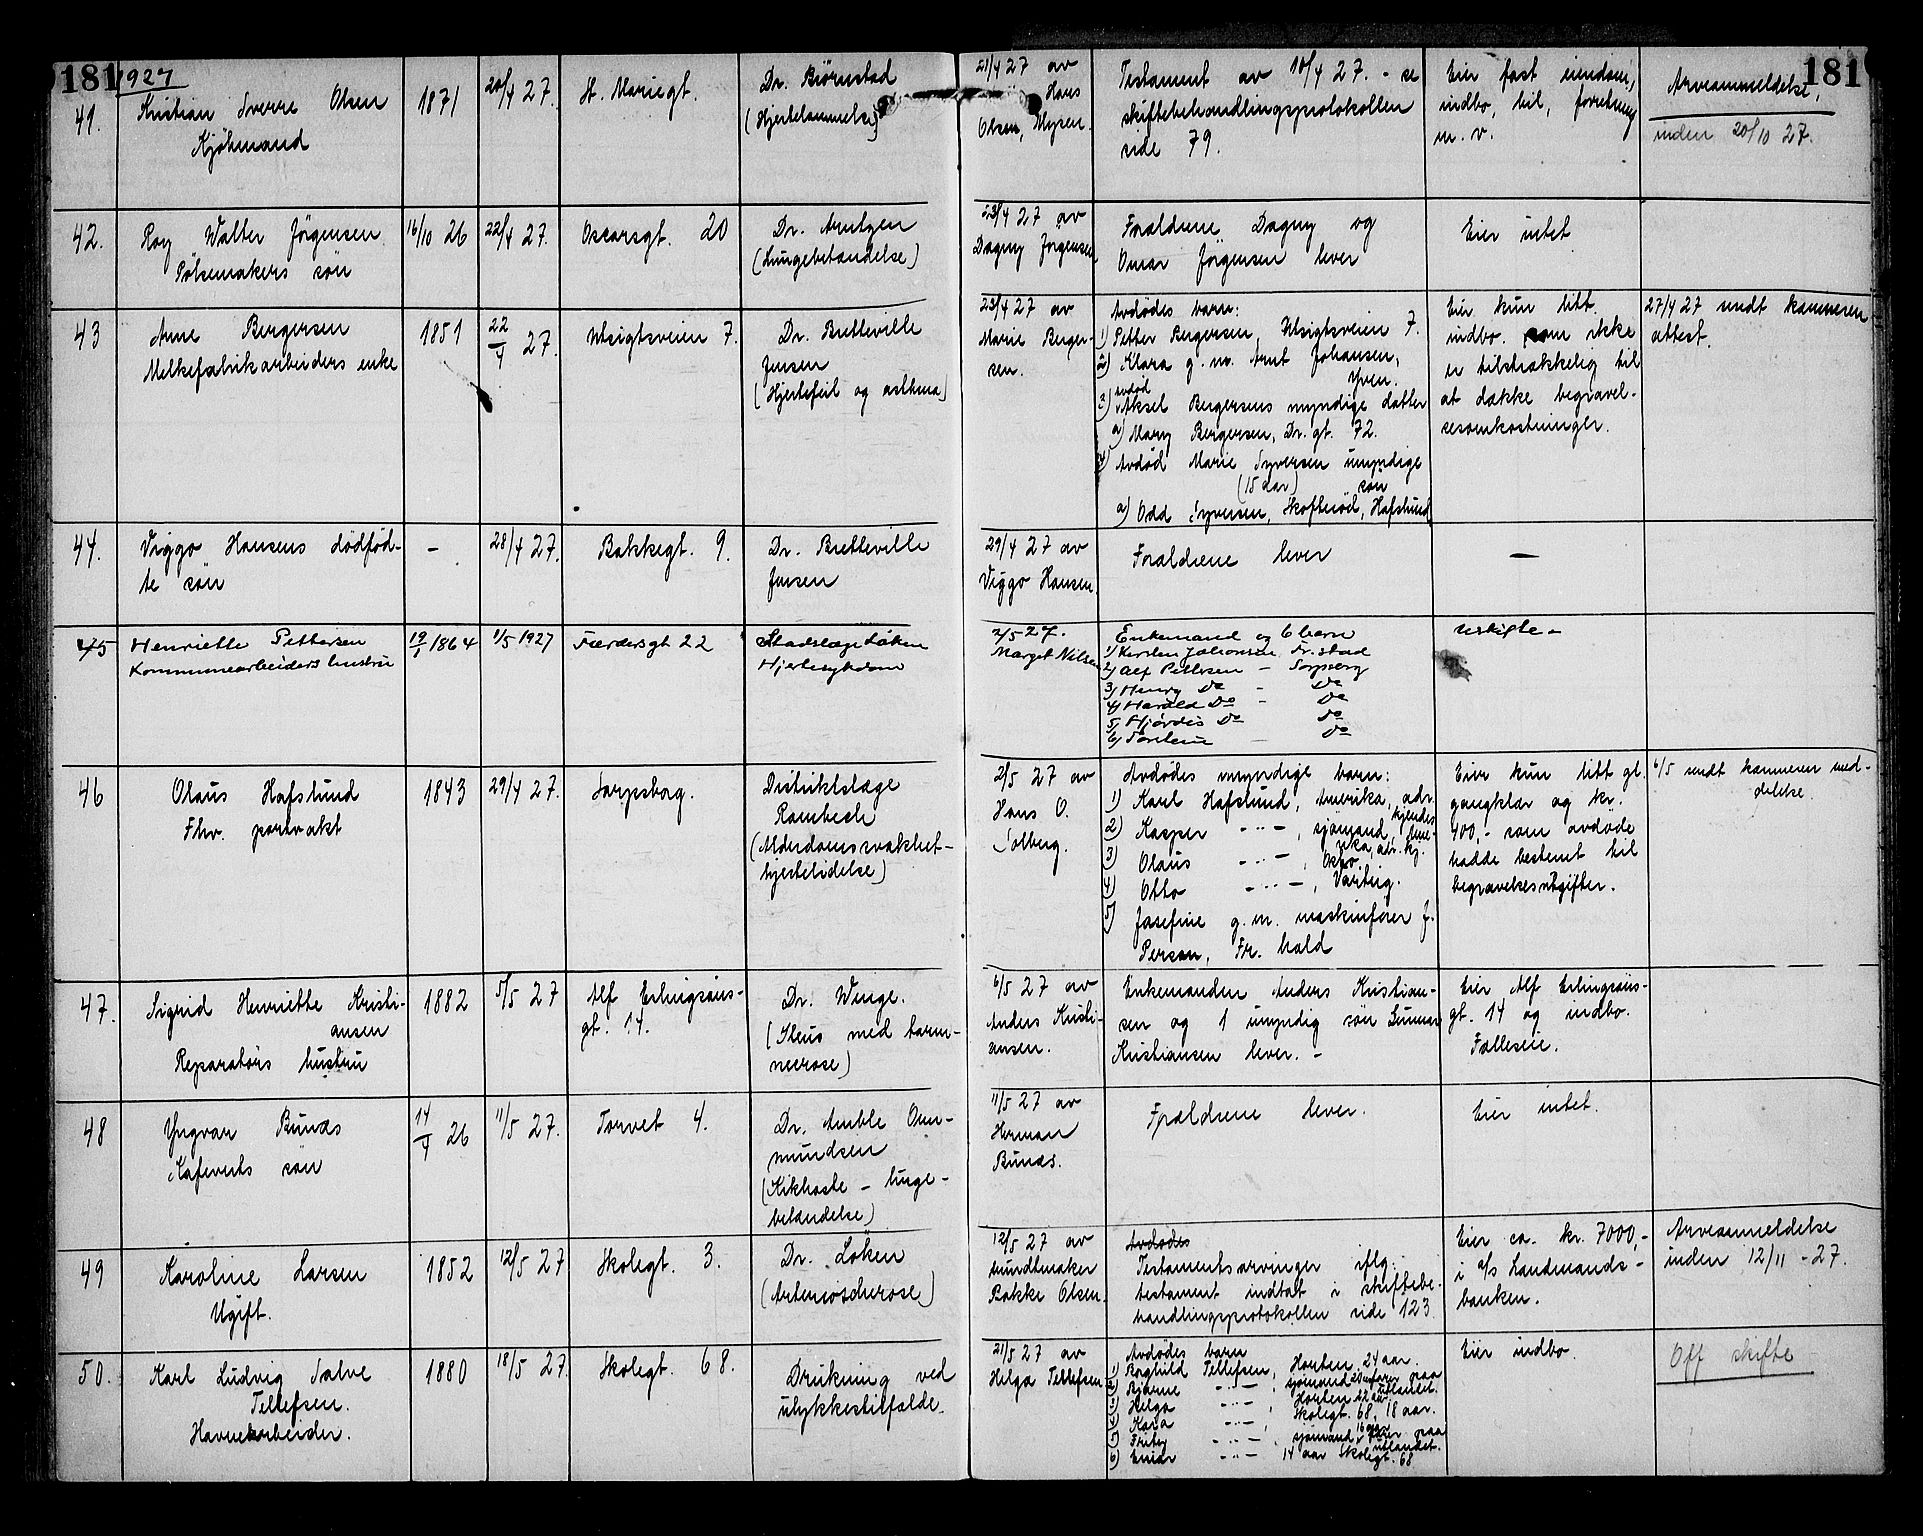 181
1927
181
41.
Kristian Sverre Olsen
Kjöbmand
1871
20/4 27.
St. Mariegt.
Dr. Björnstad
(Hjertelammelse)
21/4 27 av
Hans
Olsen, Mysen.
Testament av 10/4 27. - se
skiftebehandlingsprotokollen
side 79.
Eier fast eiendom,
indbo, bil, forretning
m. v.
Arveanmeldelse,
inden 20/10 27.
42.
Roy Walter Jörgensen
Pölsemakers sön
16/10 26
22/4 27.
Oscarsgt. 20
Dr. Arntzen
(Lungebetændelse)
23/4 27 av
Dagny Jörgensen
Forældrene Dagny og
Omar Jörgensen lever
Eier intet
43
Anne Bergersen
Melkefabrikarbeiders enke
1851
22/4 27.
Utsigtsveien 7.
Dr. Bretteville
Jensen
(Hjertefeil og asthma)
23/4 27 av
Marie Berger-
sen.
Avdödes barn:
1) Petter Bergersen, Utsigtsveien 7.
2) Klara g. m. Arnt Johansen,
Yven.
3) avdöd Aksel Bergersens myndige datter
a) Mary Bergersen, Dr. gt. 72.
4) Avdöd Marie Syversen umyndige
(15 aar) sön
a) Odd Syversen, Skofteröd, Hafslund
Eier kun litt
indbo som ikke
er tilstrækkelig til
at dække begravel-
sesomkostninger.
27/4 27 sendt kæmneren
attest.
44.
Viggo Hansens dödföd-
te sön
-
28/4 27.
Bakkegt. 9.
Dr. Bretteville
Jensen
29/4 27 av
Viggo Hansen.
Forældrene lever
-
45
Henriette Pettersen
Kommunearbeiders hustru
19/1 1864
1/5 1927
Færdersgt 22
Stadslæge Løken
Hjertesykdom
2/5 27.
Marget Nilsen
Enkemand og 6 barn
1) Kirsten Johansen Fr.stad
2) Alf Pettersen - Sarpsborg
3) Henry Do - Do
4) Harald Do - Do
5) Hjørdis Do Do
6) Torstein - Do
Uskifte -
46
Olaus Hafslund
Fhv. portvakt
1843
29/4 27.
Sarpsborg.
Distriktslæge
Rambech
(Alderdomssvakhet-
hjertelidelse)
2/5 27 av
Hans O.
Solberg.
Avdödes myndige barn:
1) Karl Hafslund, Amerika, adr.
kjendes
2) Kasper -"- , sjömand, Ame-
rika, adr. kj.
3) Olaus -"- , Oslo.
4) Otto -"- , Varteig.
5) Josefine g. m. maskinförer J.
Person, Fr. hald
Eier kun litt gl.
gangklær og kr.
400,- som avdöde
hadde bestemt til
begravelsesutgifter.
6/5 sendt kæmneren med-
delelse.
47.
Sigrid Henriette Kristi-
ansen
Reparatörs hustru
1882
5/5 27
Alf Erlingsöns-
gt. 14.
Dr. Winge.
(Ileus med tarm-
necrose)
6/5 27 av
Anders Kristi-
ansen.
Enkemanden Anders Kristian-
sen og 1 umyndig sön Gunnar
Kristiansen lever. -
Eier Alf Erlingsöns-
gt. 14 og indbo.
Fælleseie.
48
Yngvar Bunäs
Kafeverts sön
14/4 26
11/5 27.
Torvet 4.
Dr. Amble Om-
mundsen
(Kikhoste - lunge-
betændelse)
11/5 27 av
Herman
Bunäs.
Forældrene lever.
Eier intet.
49
Karoline Larsen
Ugift.
1852
12/5 27
Skolegt. 3.
Dr. Löken
(Arteriosclerose)
12/5 27 av
bundtmaker
Bakke Olsen.
Avdödes
Testamentsarvinger iflg.
testament indtat i skiftebe-
handlingsprotokollen side 123
Eier ca. kr. 7000,-
i a/s Landmands-
banken.
Arveanmeldelse
inden 12/11 - 27.
50.
Karl Ludvig Salve
Tellefsen.
Havnearbeider.
1880
18/5 27.
Skolegt. 68.
Drukning ved
ulykkestilfælde.
21/5 27 av
Helga Tellefsen
Avdödes barn
1) Borghild Tellefsen, Horten, 24 aar.
2) Bjarne -"- , sjömand i utenfart paa
Horten 22 aar
3) Helga -"- , Skolegt. 68, 18 aar.
4) Kara -"-
5) Fritz -"- , sjömand paa
utlandet.
6) Einar -"- 14 aar Skolegt. 68
Eier indbo.
Off skifte